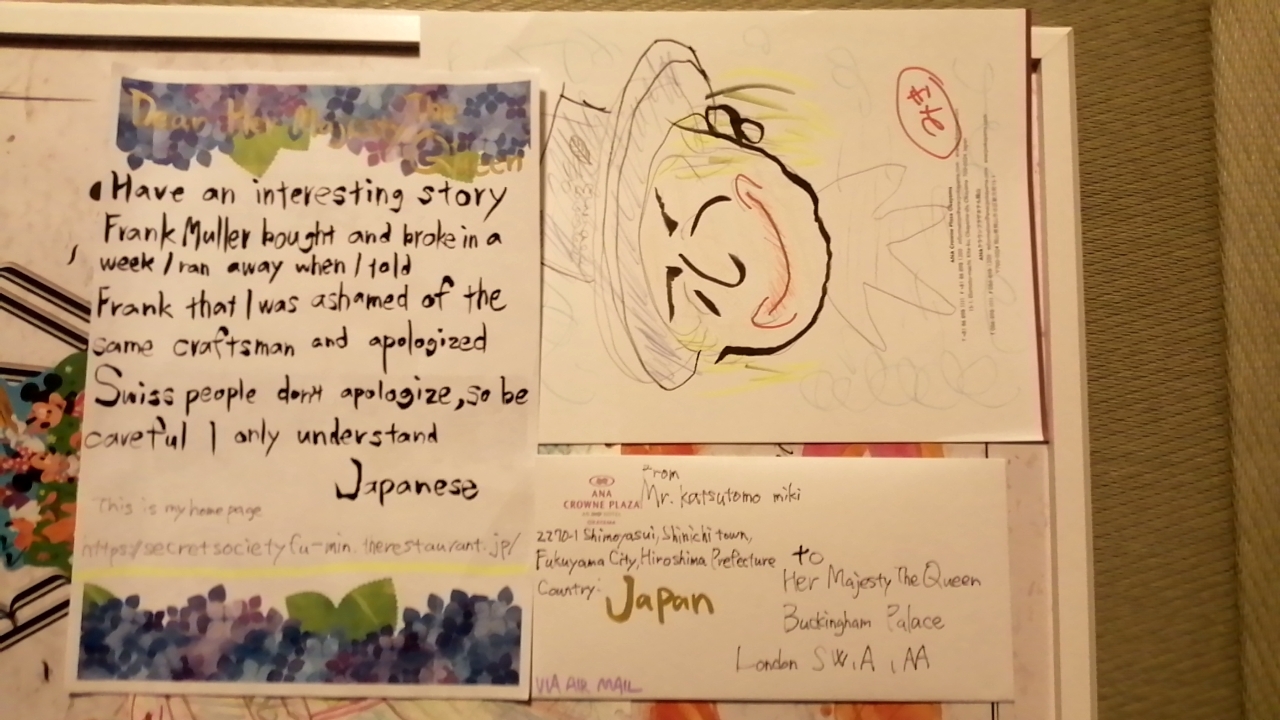 Dear Her Majesty The
Queen
Have an interesting story
Frank Muller bought and broke in a
week I ran away when I told
Frank that I was ashamed of the
same craftsman and apologized
Swiss people don't apologize, so be
careful I only understand
Japanese
This is my home page
https://secretsocietyfu-min.therestaurant.jp/
ANA Crowne Plaza Okayama
ANA
CROWNE PLAZA
From
Mr. Katsutomo miki
2270-1 Shimoyasui, Shinichi town,
Fukuyama City, Hiroshima Prefecture
Country:
Japan
to
Her Majesty The Queen
Buckingham Palace
London SW1A 1AA
VIA AIR MAIL